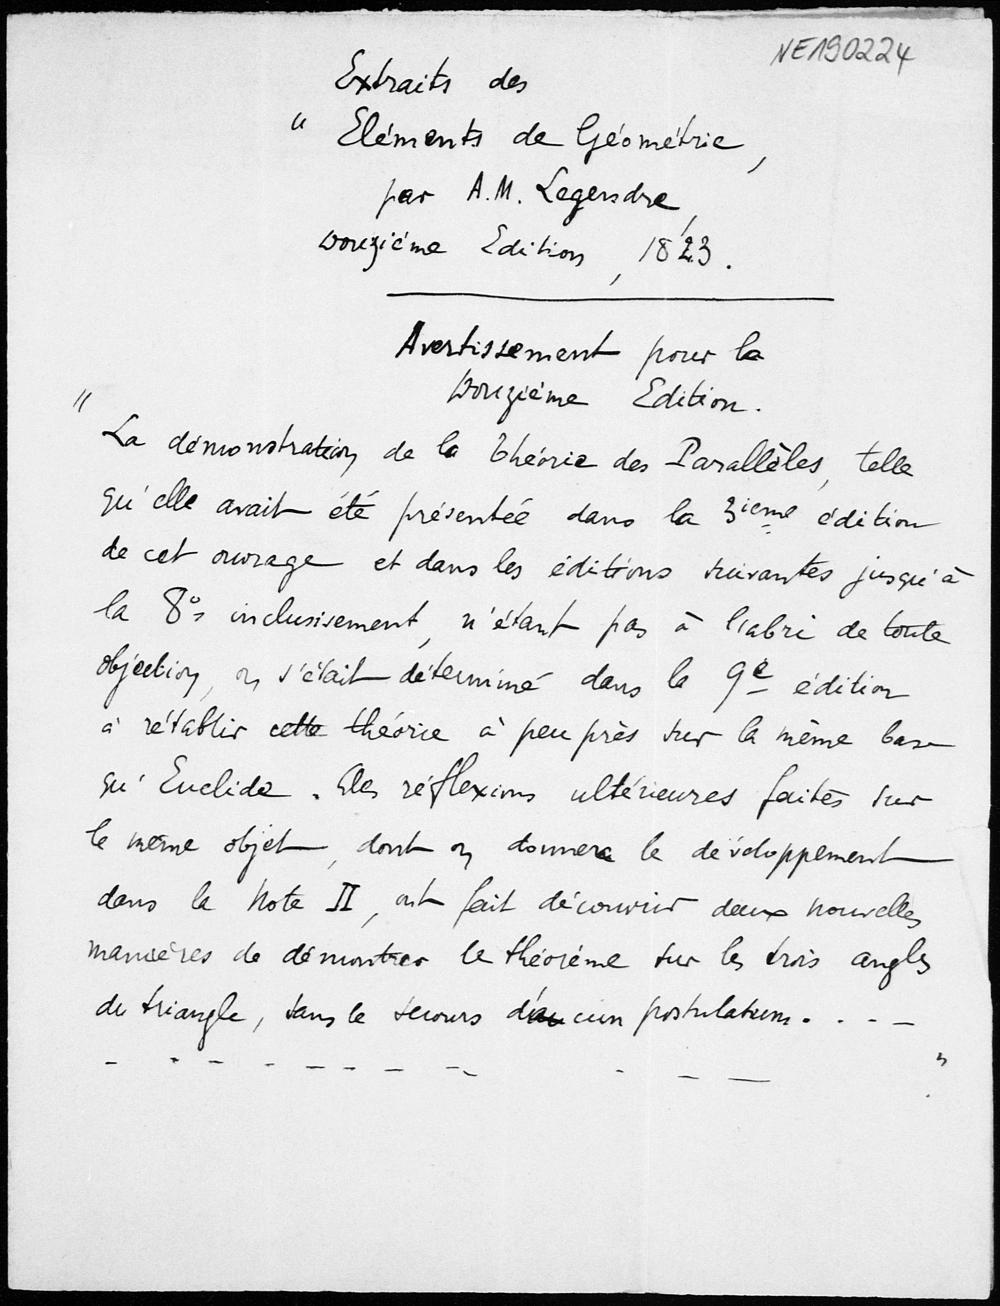 NE190224
Extraits des
" Eléments de Géométrie,
par A.M. Legendre,
Douzième Edition, 1823.
Avertissement pour la
Douzième Edition.
"
La démonstration de la théorie des Parallèles, telle
qu'elle avait été présentée dans la 3ieme édition
de cet ouvrage et dans les éditions suivantes jusqu'à
la 8e inclusivement, n'étant pas à l'abri de toute
objection, on s'était déterminé dans la 9e édition
à rétablir cette théorie à peu près sur la même base
qu'Euclide. Des réflexions ultérieures faites sur
le même objet, dont on donnera le développement
dans la Note II, ont fait découvrir deux nouvelles
manières de démontrer le théorème sur les trois angles
du triangle, sans le secours d'aucun postulatum. . - - -
- - - - - - - - - - - "